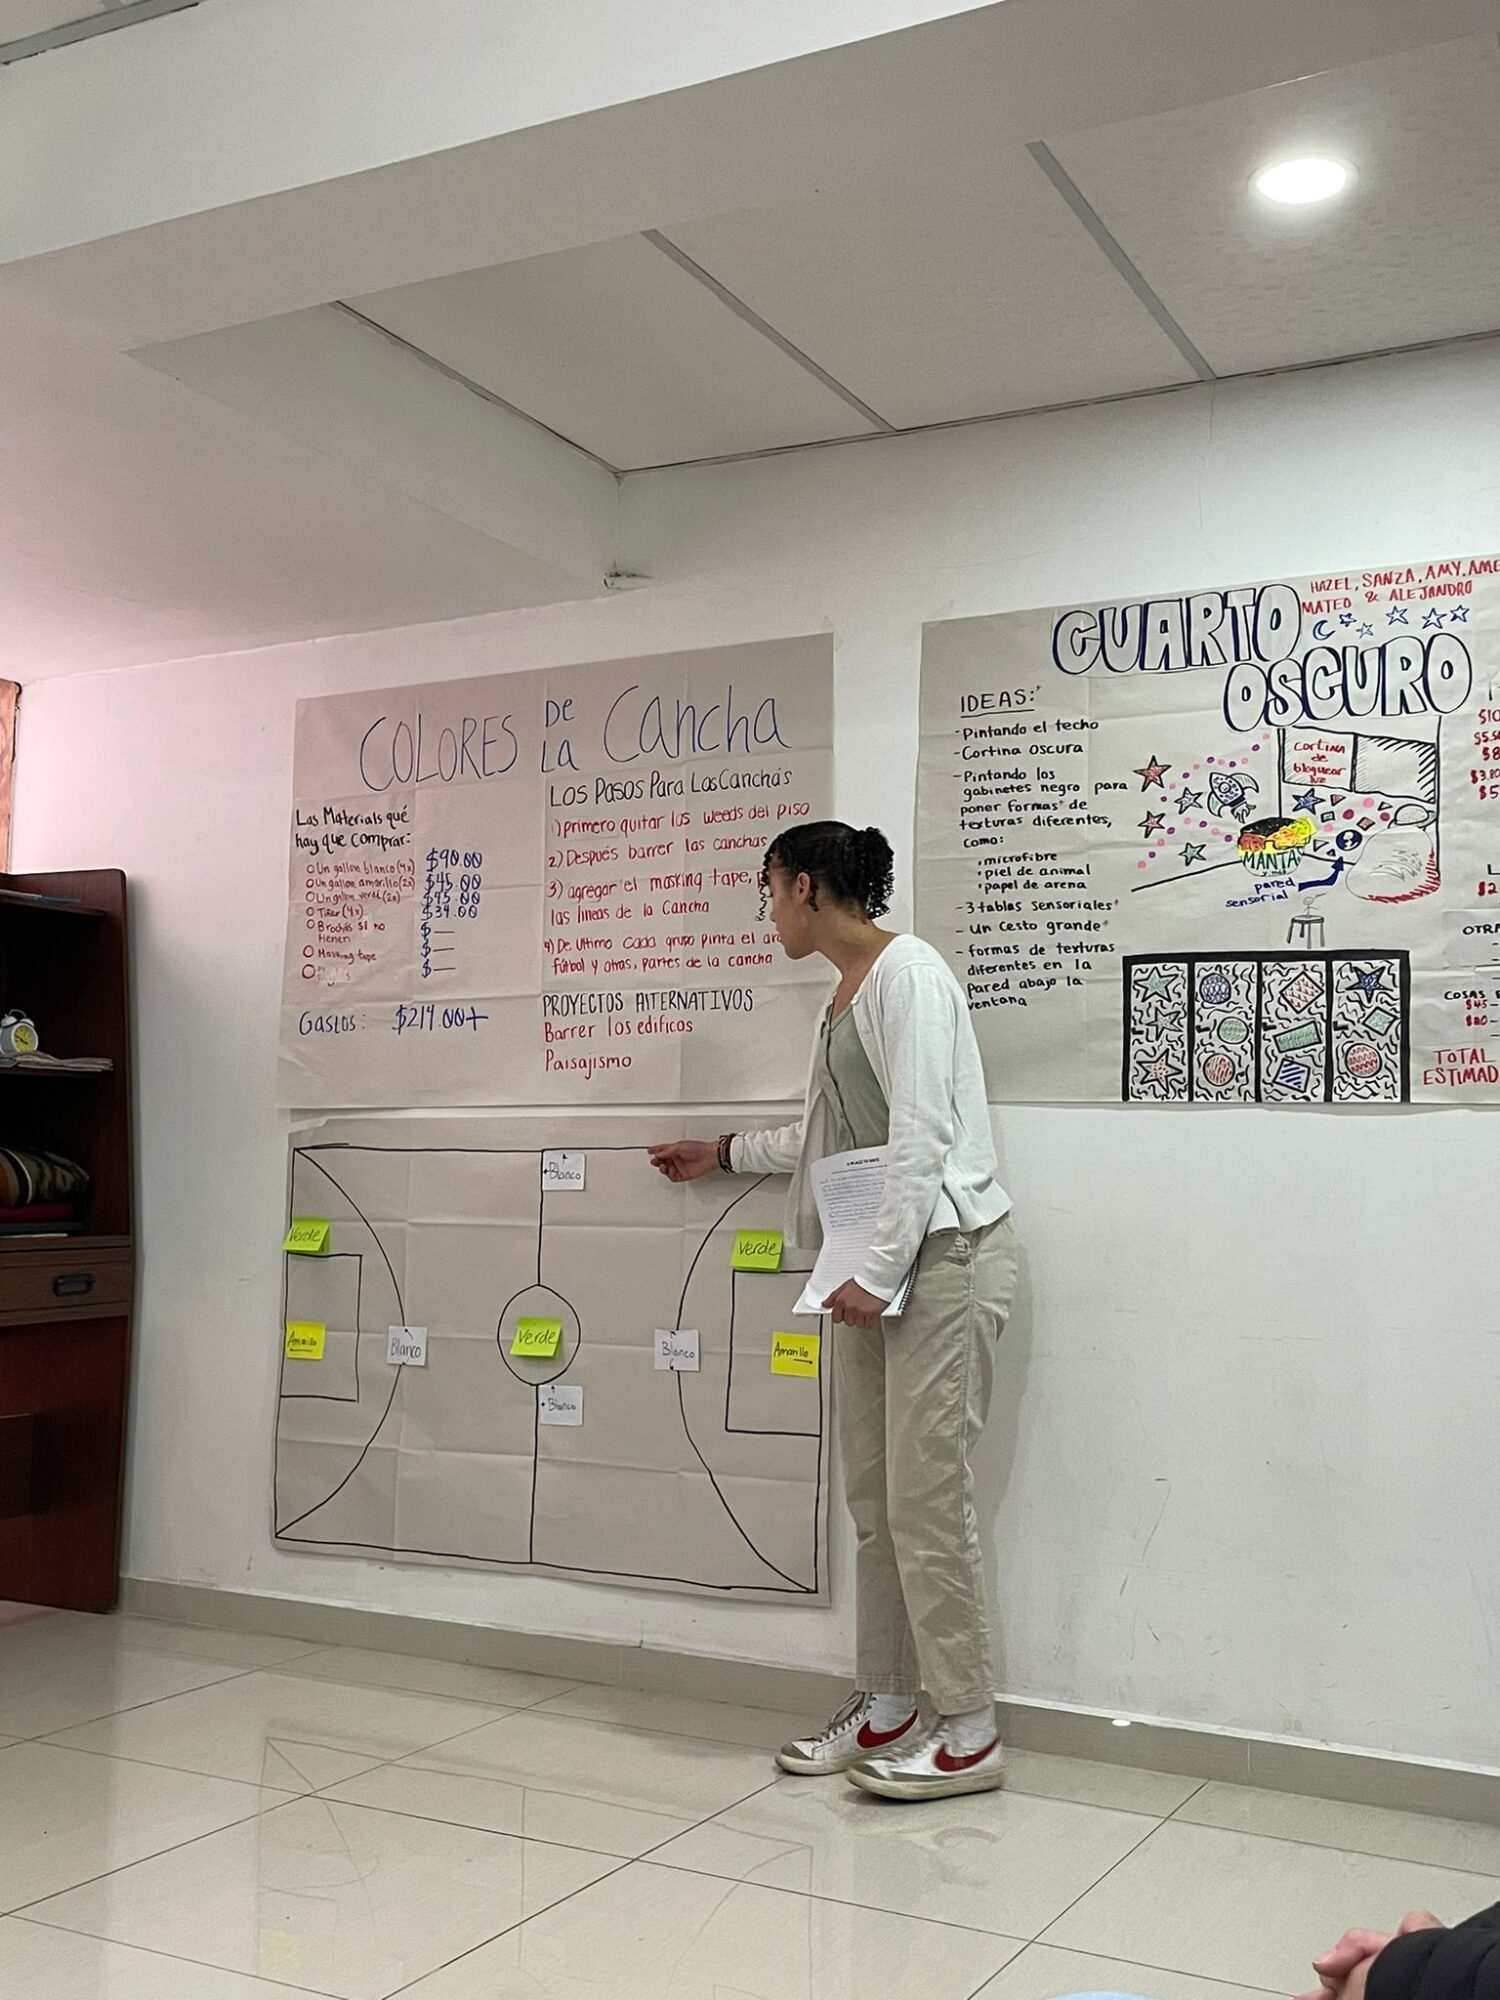 COLORES DE LA Cancha
Las Materials qué
hay que comprar:
Un gallon blanco (4x) $90.00
Un gallon amarillo (2x) $45.00
Un gallon verde (2x) $45.00
Tiner (4x) $34.00
Brochas si no
tienen $—
Masking tape $—
$—
Gastos: $214.00+
Los Pasos Para Las Canchas
1) primero quitar los weeds del piso
2) Después barrer las canchas
3) agregar el masking tape,
las lineas de la Cancha
4) De Ultimo cada grupo pinta el
fútbol y otras, partes de la cancha
PROYECTOS AlTERNATIVOS
Barrer los edificos
Paisajismo
Blanco
Verde
Verde
Amarillo
Blanco
Verde
Blanco
Amarillo
Blanco
HAZEL, SANZA, AMY, AME
MATEO & ALEJANDRO
CUARTO
OSCURO
IDEAS:
- Pintando el techo
- Cortina oscura
- Pintando los
gabinetes negro para
poner formas de
texturas diferentes,
como:
• microfibre
• piel de animal
• papel de arena
- 3 tablas sensoriales
- Un cesto grande
- formas de texturas
diferentes en la
pared abajo la
ventana
cortina
de
bloquear
luz
MANTAS
y más
pared
sensorial
OTRA
COSAS
TOTAL
ESTIMAD